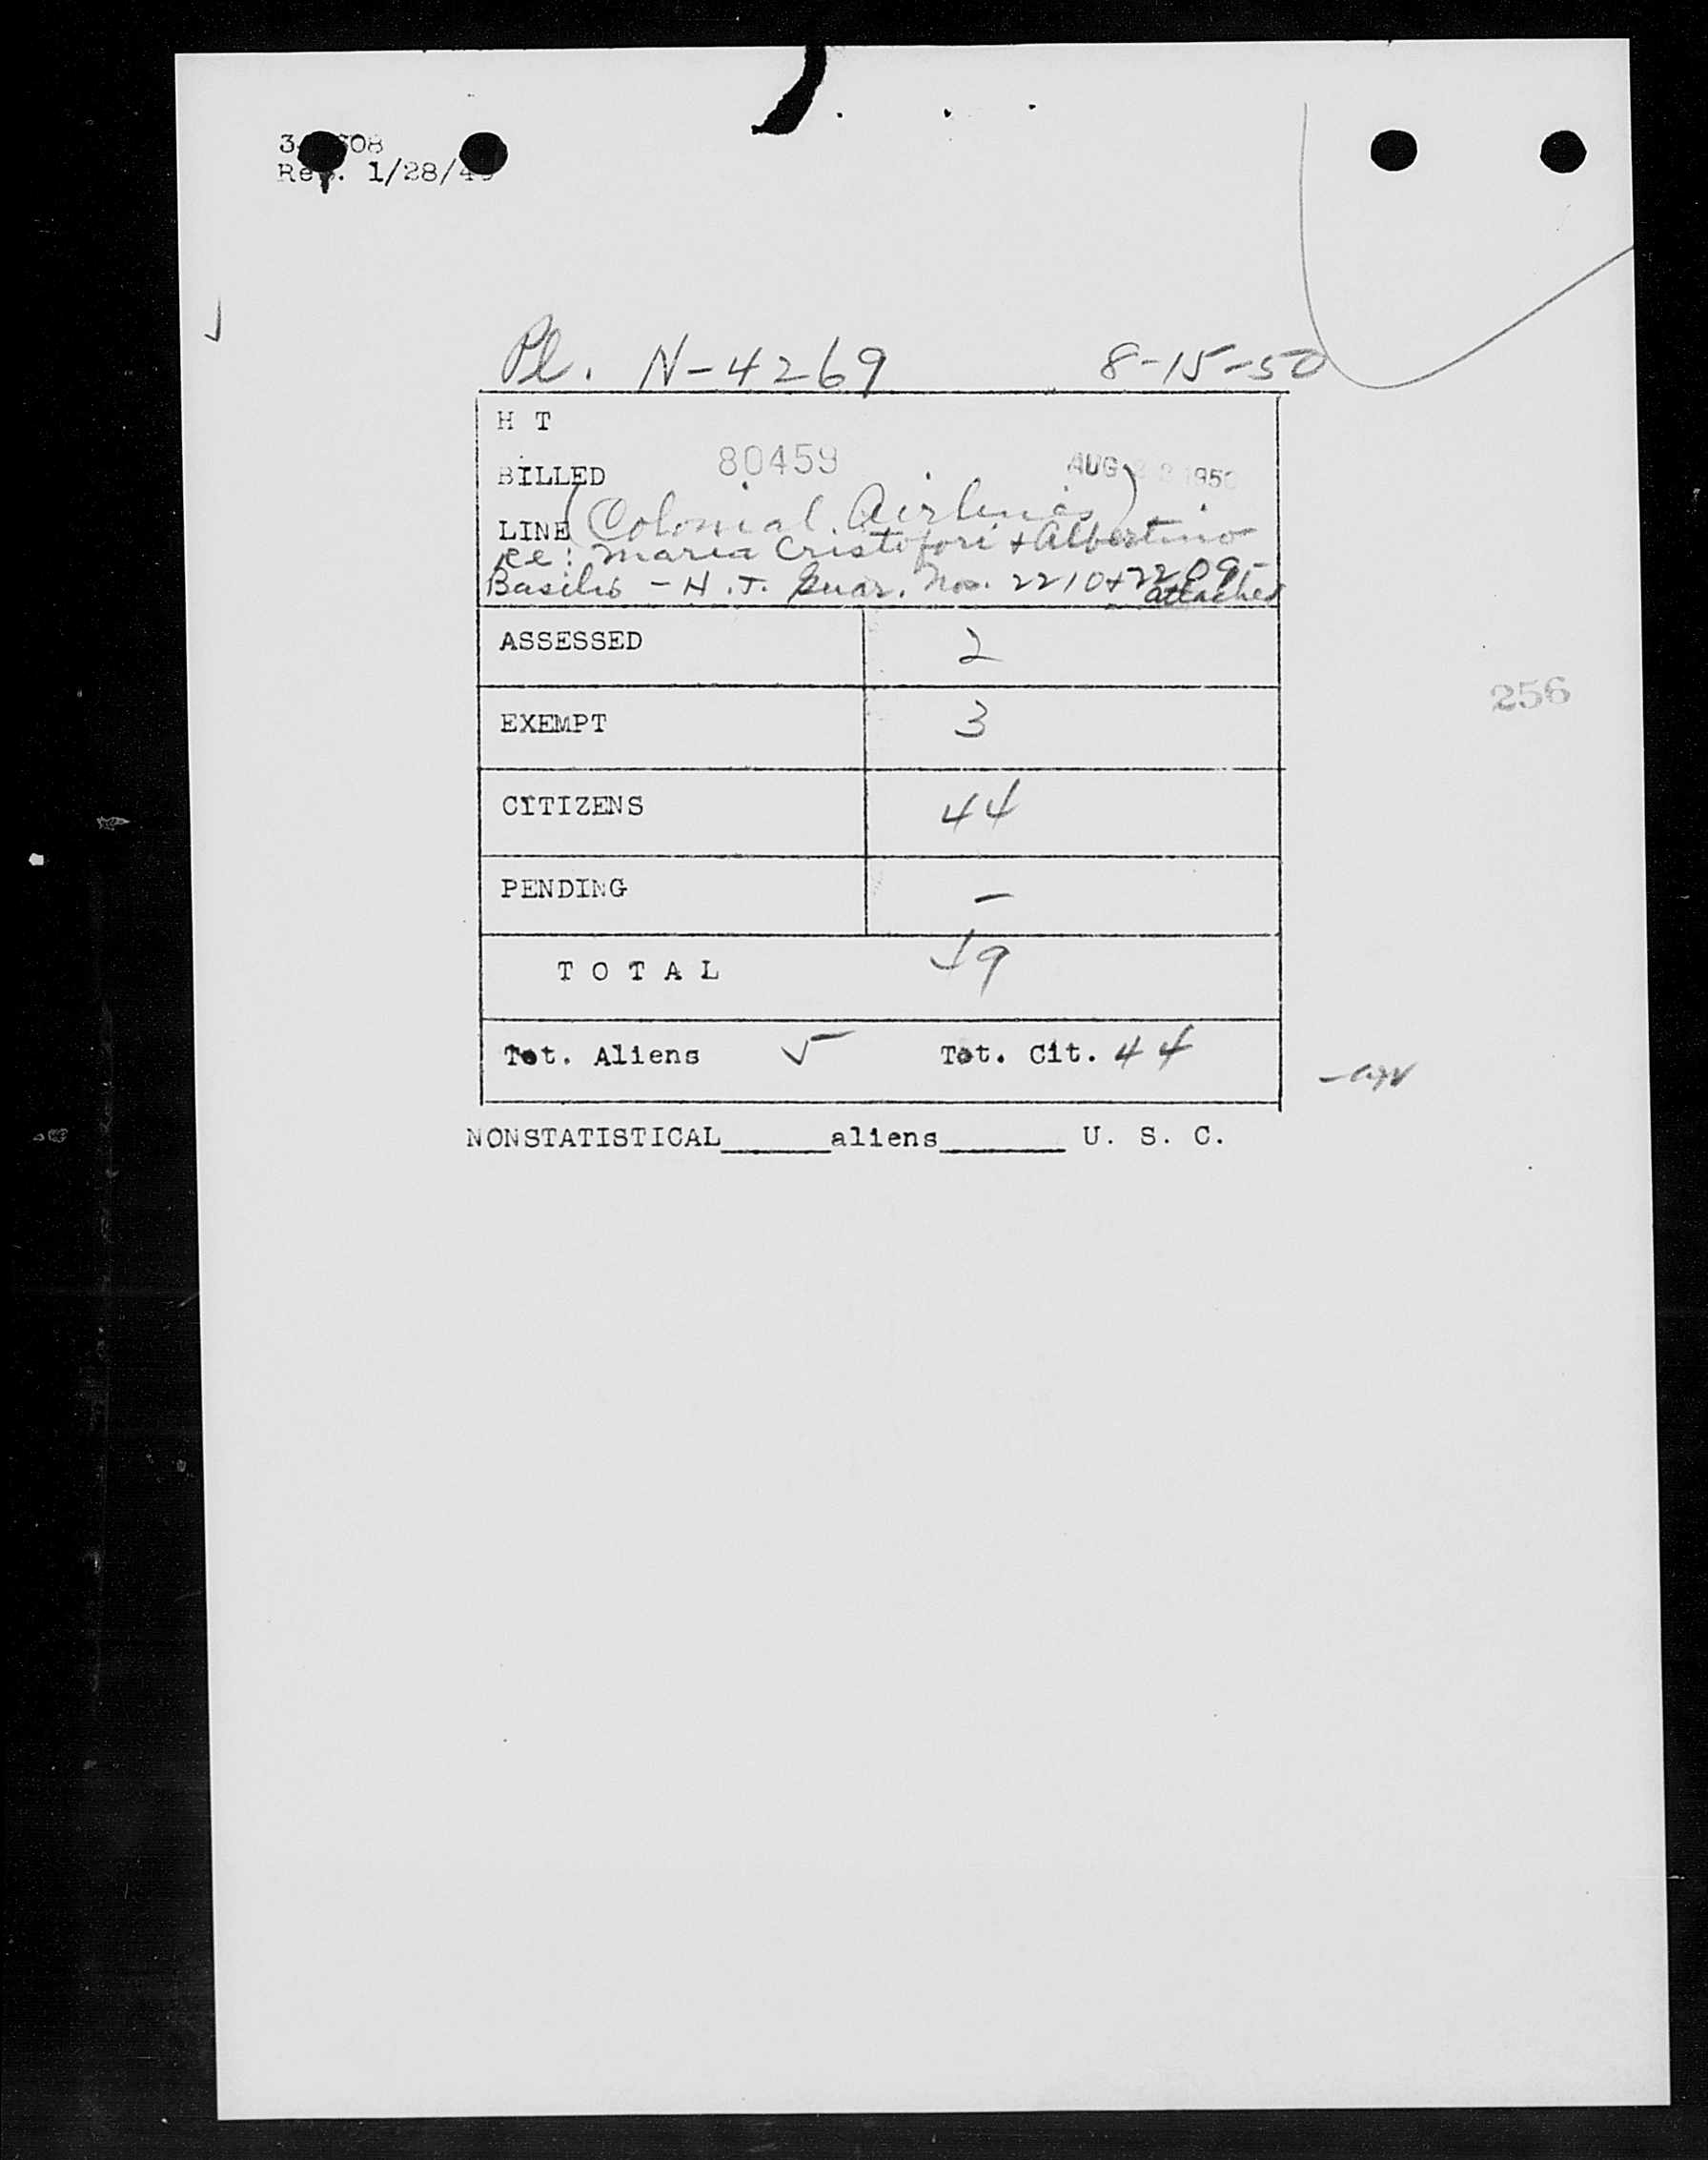 Rev. 1/28/
Pl. N-4269 8-15-50
H T
BILLED 80459 AUG 1950
LINE (Colonial Airlines)
Re: Maria Cristofori + Albertino
Basilio - H.T. Guar. Nos. 2210 + 2209-
attached
ASSESSED 2
EXEMPT 3
CITIZENS 44
PENDING —
TOTAL 49
Tot. Aliens 5 Tot. Cit. 44
NONSTATISTICAL______aliens_______ U. S. C.
256